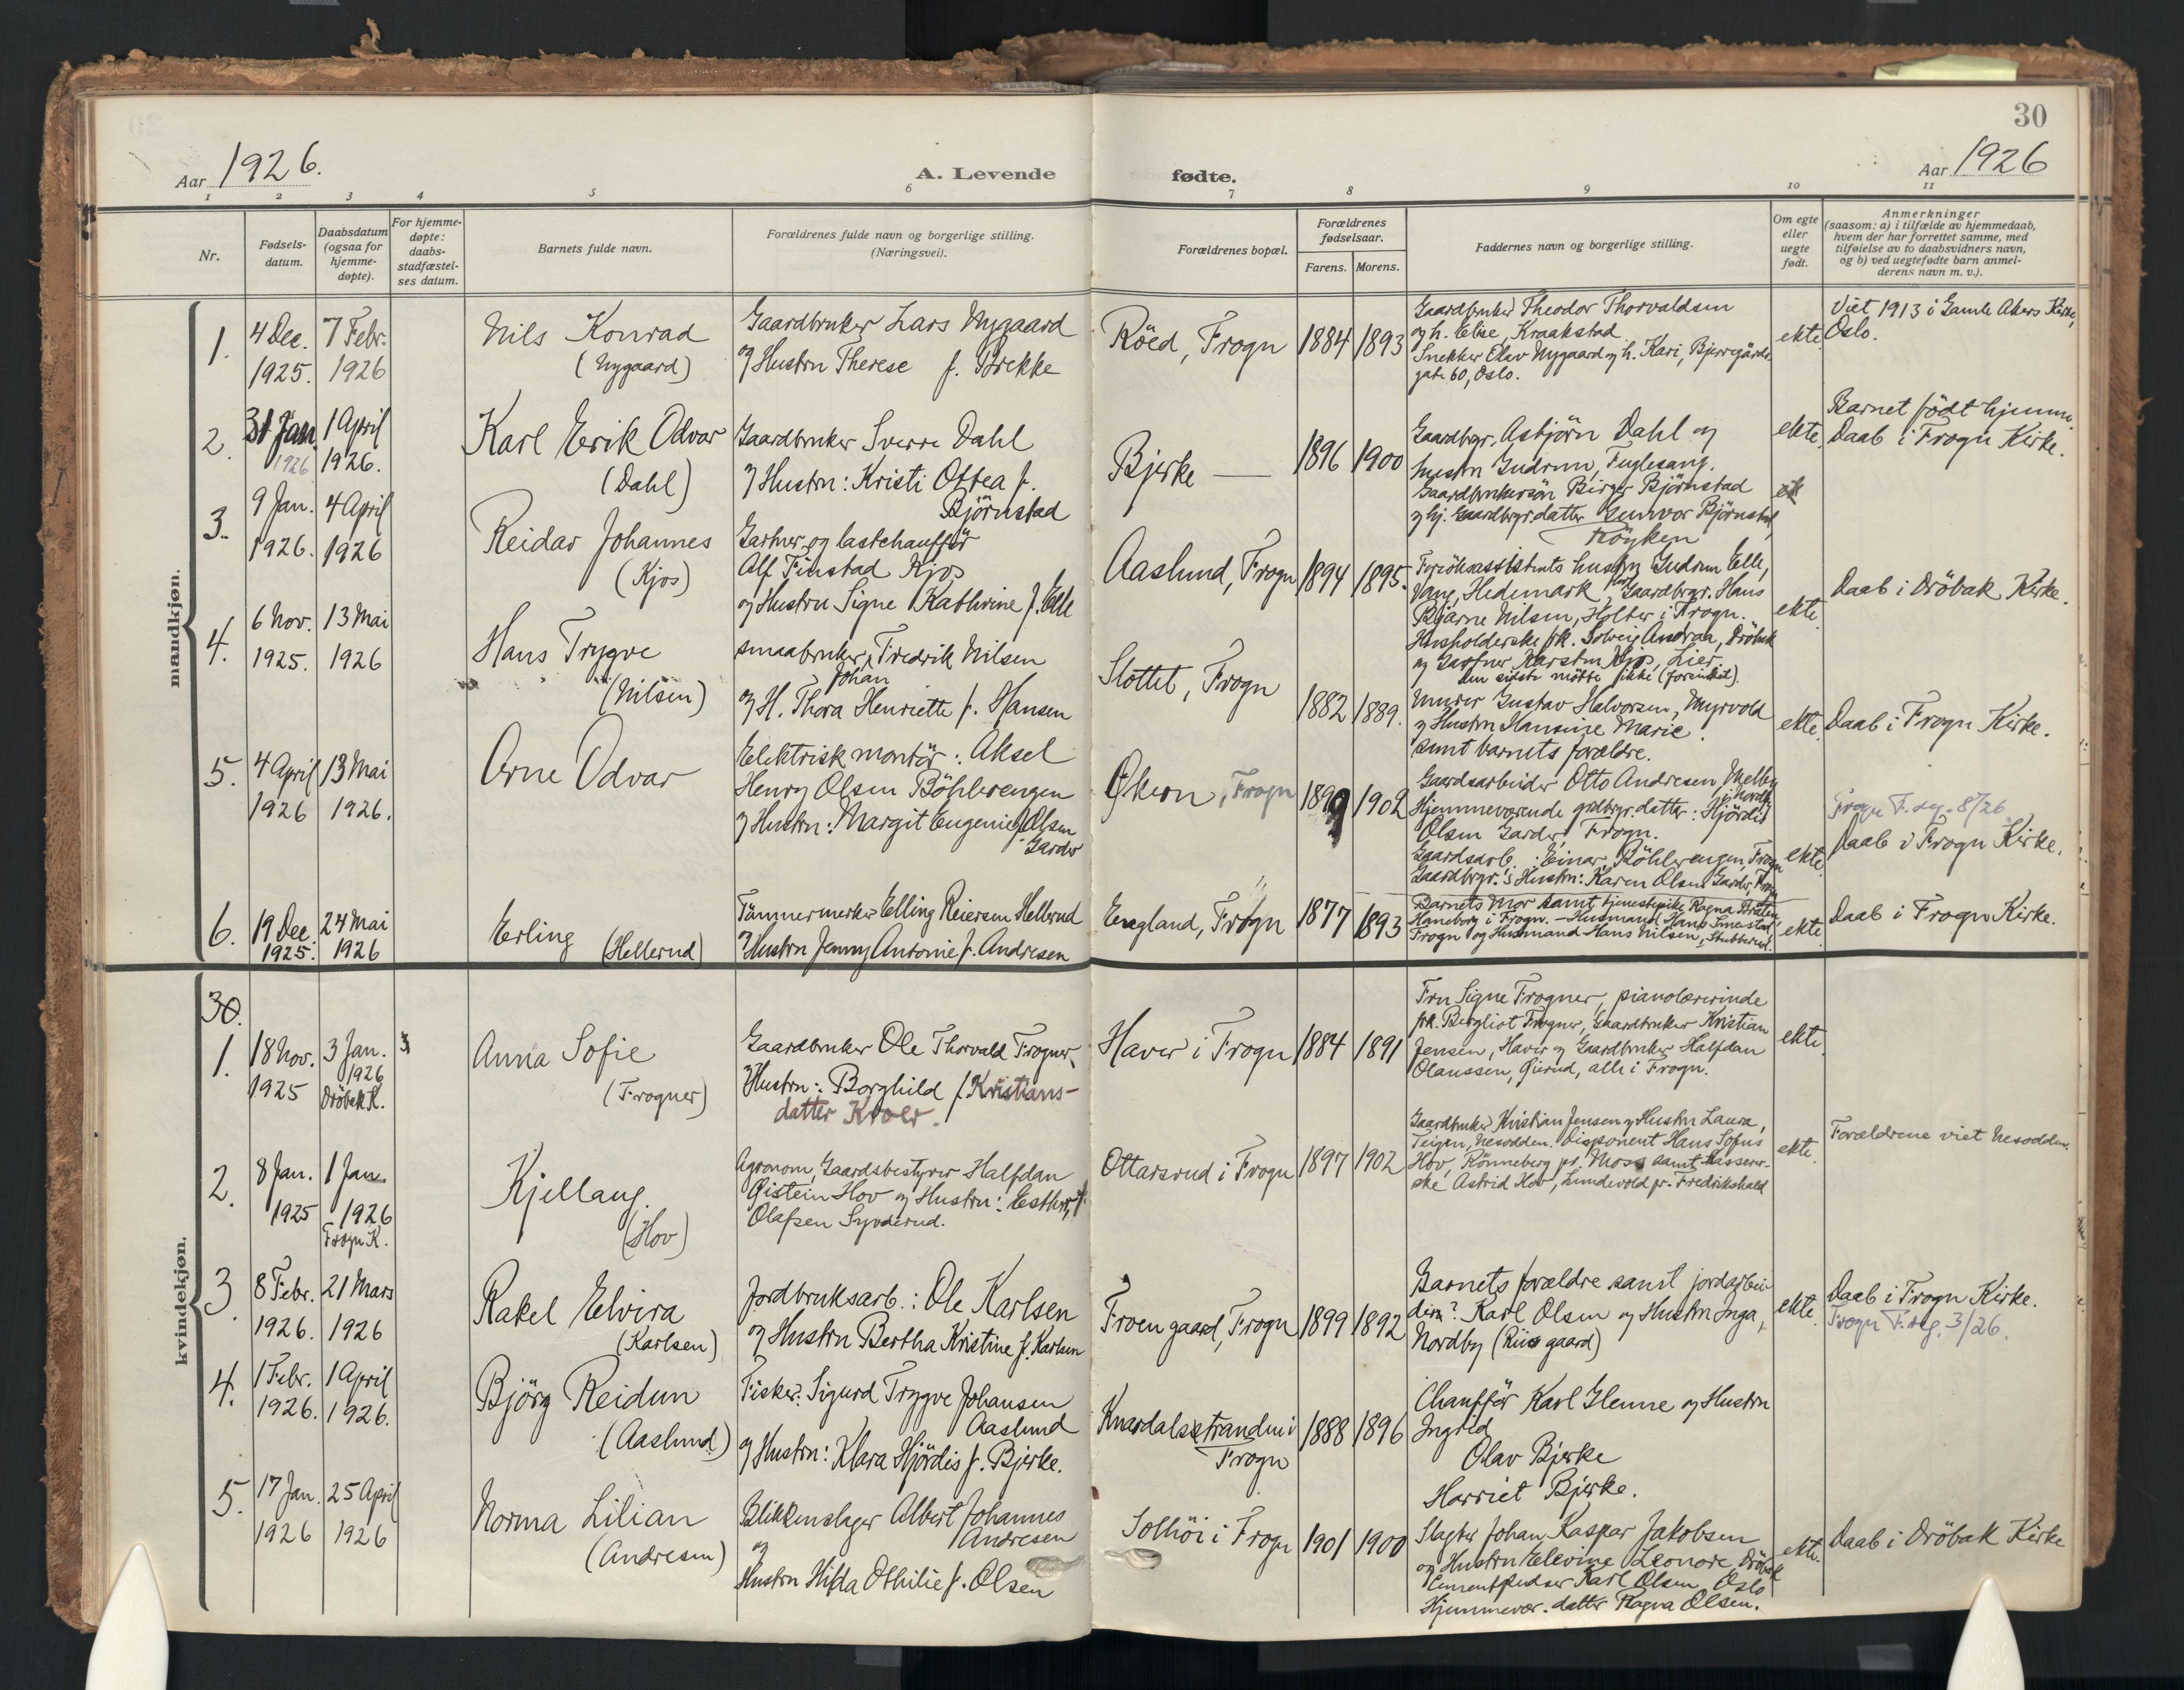 30
Aar 1926.
A. Levende
fødte.
Aar 1926
1 2 3 4 5 6 7 8 9 10 11
Nr.
Fødsels-
datum.
Daabsdatum
(ogsaa for
hjemme-
døpte).
For hjemme-
døpte:
daabs-
stadfæstel-
ses datum.
Barnets fulde navn.
Forældrenes fulde navn og borgerlige stilling.
(Næringsvei).
Forældrenes bopæl.
Forældrenes
fødselsaar.
Farens. Morens.
Faddernes navn og borgerlige stilling.
Om egte
eller
uegte
født.
Anmerkninger
(saasom: a) i tilfælde av hjemmedaab,
hvem der har forrettet samme, med
tilføielse av to daabsvidners navn,
og b) ved uegtefødte barn anmel-
derens navn m. v.).
mandkjøn.
1.
4 Dec.
1925.
7 Febr.
1926
Nils Konrad
(Nygaard)
Gaardbruker Lars Nygaard
og Hustru Therese f. Brekke
Röed, Frogn
1884
1893
Gaardbruker Theodor Thorvaldsen
og h. Else, Kraakstad
Snekker Olav Nygaard og h. Kari, Bjerregårds
gate 60, Oslo.
ekte
Viet 1913 i Gamle Akers Kirke,
Oslo.
2.
31 Jan.
1926
1 April
1926.
Karl Erik Odvar
(Dahl)
Gaardbruker Sverre Dahl
og Hustru: Kristi Ottea f.
Björnstad
Bjerke —
1896
1900
Gaardbgr. Asbjörn Dahl og
hustru Gudrun, Fuglesang.
Gaardbrukersön Birger Björnstad
og hj. Gaardbgr.datter Gunvor Björnstad,
Röyken
ekte
Barnet födt hjemme.
Daab i Frogn Kirke.
3.
9 Jan.
1926.
4 April
1926
Reidar Johannes
(Kjos)
Gartner og lastechaufför
Alf Finstad Kjos
og Hustru Signe Kathrine f. Elle
Aaslund, Frogn
1894
1895.
Fyrökassistents hustru Gudrun Elle,
Vang, Hedemark, Gaardbrgr. Hans
Bjarne Nilsen, Holter i Frogn.
Husholderske frk. Solveig Andraa, Dröbak
og Gartner Karsten Kjos, Lier.
den sidste mötte ikke (forsinket).
ekte
Daab i Dröbak Kirke.
4.
6 Nov.
1925.
13 Mai
1926
Hans Trygve
(Nilsen)
smaabruker, Fredrik Nilsen
Johan
og H. Thora Henriette f. Hansen
Slottet, Frogn
1882
1889.
Murer Gustav Halvorsen, Myrvold
og Hustru Hansine Marie.
samt barnets forældre.
ekte
Daab i Frogn Kirke.
5.
4 April
1926
13 Mai
1926.
Arne Odvar
Elektrisk montör: Aksel
Henry Olsen Böhlerengen
og Hustru: Margit Eugenie f. Olsen
Garder
Økern, Frogn
1899
1902
Gaardsarbeider Otto Andresen, Melby
i Nordby
Hjemmeværende grdbrgr.datter: Hjördis
Olsen Garder, Frogn.
Gaardsarb.: Einar Böhlerengen, Frogn
Gaardbrgr.'s Hustru: Karen Olsen Garder, Frogn
ekte
Frogn F.reg. 8/26
Daab i Frogn Kirke.
6.
19 Dec.
1925.
24 Mai
1926
Erling (Hellerud)
Tömmermerker Elling Reiersen Hellerud
og Hustru Jenny Antonie f. Andresen
England, Frogn
1877
1893
Barnets Mor samt tjenestepike Ragna Braten,
Haneborg i Frogn. — Husmand Hans Finestad
Frogn og Husmand Hans Nilsen, Stubberud.
ekte
Daab i Frogn Kirke.
kvindekjøn.
30.
1.
18 Nov.
1925
3 Jan.
1926
Dröbak K.
Anna Sofie
(Frogner)
Gaardbruker Ole Thorvald Frogner,
Hustru: Borghild f. Kristians-
datter Kroer.
Haver i Frogn
1884
1891
Fru Signe Frogner, pianolærerinde
frk. Bergliot Frogner, Gaardbruker Kristian
Jensen, Haver og Gaardbruker Halfdan
Olaussen, Gierud, alle i Frogn.
ekte
2.
8 Jan.
1925
1 Jan.
1926
Frogn K.
Kjellaug.
(Hov)
Agronom, Gaardsbestyrer Halfdan
Øistein Hov og Hustru: Esther, f.
Olafsen Synderud.
Ottarsrud i Frogn
1897
1902
Gaardbruker Kristian Jensen og Hustru Laura,
Teigen, Nesodden. Disponent Hans Sofus
Hov, Rönneberg pr. Moss samt Kasserer-
ske Astrid Hov, Lundevold pr. Fredrikshald
ekte.
Forældrene viet Nesodden.
3
8 Febr.
1926.
21 Mars
1926
Rakel Elvira
(Karlsen)
Jordbruksarb.: Ole Karlsen
og Hustru Bertha Kristine f. Karlsen
Froen gaard, Frogn
1899
1892
Barnets forældre samt jordarbei
der: Karl Olsen og Hustru Inga,
Nordby (Riis gaard)
ekte
Daab i Frogn Kirke.
Frogn F.reg. 3/26.
4.
1 Febr.
1926.
1 April
1926.
Björg Reidun
(Aaslund)
Fisker: Sigurd Trygve Johansen
Aaslund
og Hustru: Klara Hjördis f. Bjerke.
Knardalsstranden i
Frogn
1888
1896
Chaufför Karl Glenne og Hustru
Ingrid
Olav Bjerke
Harriet Bjerke.
5.
17 Jan.
1926
25 April
1926
Norma Lilian
(Andresen)
Blikkenslager Albert Johannes
Andresen
og
Hustru Hilda Othilie f. Olsen
Solhöi i Frogn
1901
1900
Slagter Johan Kaspar Jakobsen
og Hustru Elevine Leonore Dröbak
Cementstöper Karl Olsen, Oslo
Hjemmevær. datter Ragna Olsen.
ekte.
Daab i Dröbak Kirke